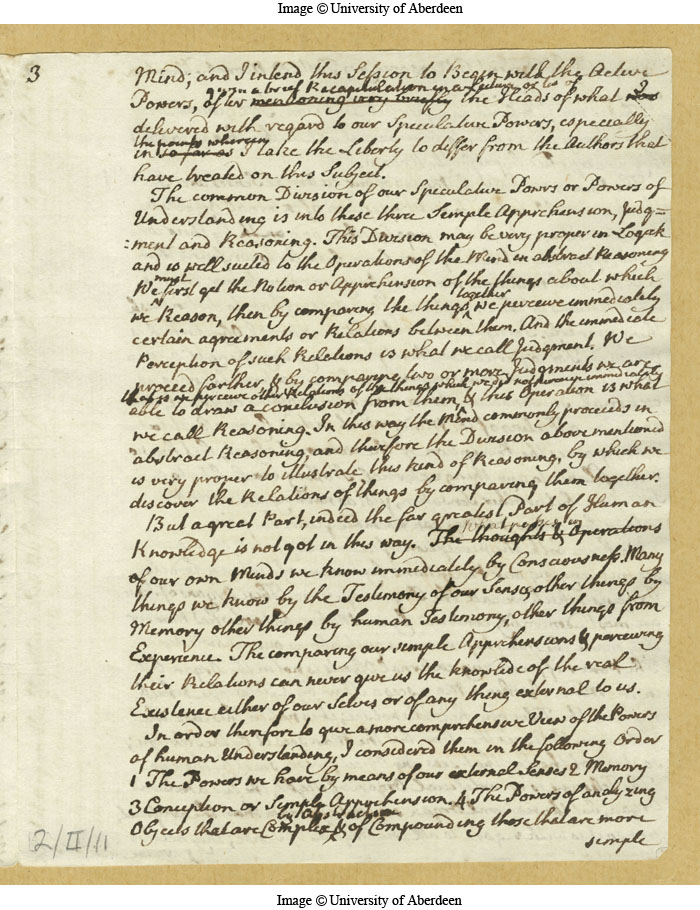 Image © University of Aberdeen
3
Mind; and I intend this Session to Begin with the Active
given a brief Recapitulation in a Lecture or two
Powers, after mentioning very briefly the Heads of what I
delivered with regard to our Speculative Powers, especially
the points wherein
in so far as I take the Liberty to differ from the Authors that
have treated on this Subject.
The common Division of our Speculative Powrs or Powers of
Understanding is into these three Semple Apprehension, Judg=
=ment and Reasoning. This Division may be very proper in Logick
and is well suited to the Operations of the Mind in abstract Reasoning
must
We first get the Notion or Apprehension of the things about which
together
we Reason, then by comparing the things we perceive immediately
certain agreements or Relations between them. And the immediate
Perception of such Relations is what we call Judgment. We
proceed farther & by comparing two or more Judgments we are
that is we perceive other Relations of the things which we do not perceive immediately
able to draw a conclusion from them & this Operation is what
we call Reasoning. In this way the Mind commonly proceeds in
abstract Reasoning, and therefore the Division above mentioned
is very proper to illustrate this kind of Reasoning, by which we
discover the Relations of things by comparing them together.
But a great Part, indeed the far greatest Part of Human
what passes in
Knowledge is not got in this way. The thoughts & Operations
of our own Minds we know immediately by Consciousness. Many
things we know by the Testimony of our Senses other things by
Memory other things by human Testimony, other things from
Experience. The comparing our simple Apprehensions & perceiving
their Relations can never give us the knowlide of the real
Existence either of our Selves or of any thing external to us.
In order therefore to give a more comprehensive View of the Powers
of human Understanding, I considered them in the following Order
1 The Powers we have by means of our external Senses 2 Memory
3 Conception or Simple Apprehension. 4 The Powers of analyzing
by Abstraction
Objects that are Complex & of Compounding those that are more
simple
2/II/11
Image © University of Aberdeen